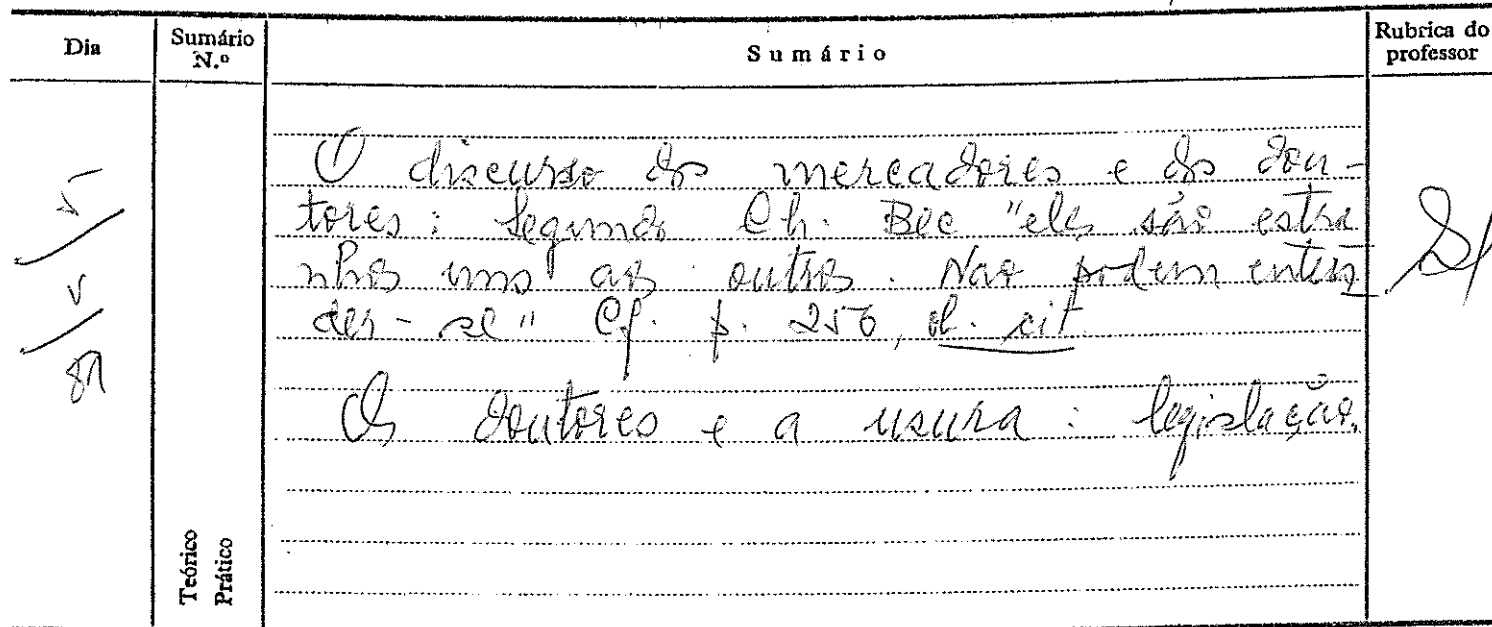 Dia
Sumário N.º
Sumário
Rubrica do professor
5
V
81
O discurso dos mercadores e dos dou-
tores: segundo Ch. Bec "eles são estra
nhos uns aos outros. Não podem enten
der-se" Cf. p. 256, ob. cit.
Os doutores e a usura: legislação.
Teórico
Prático